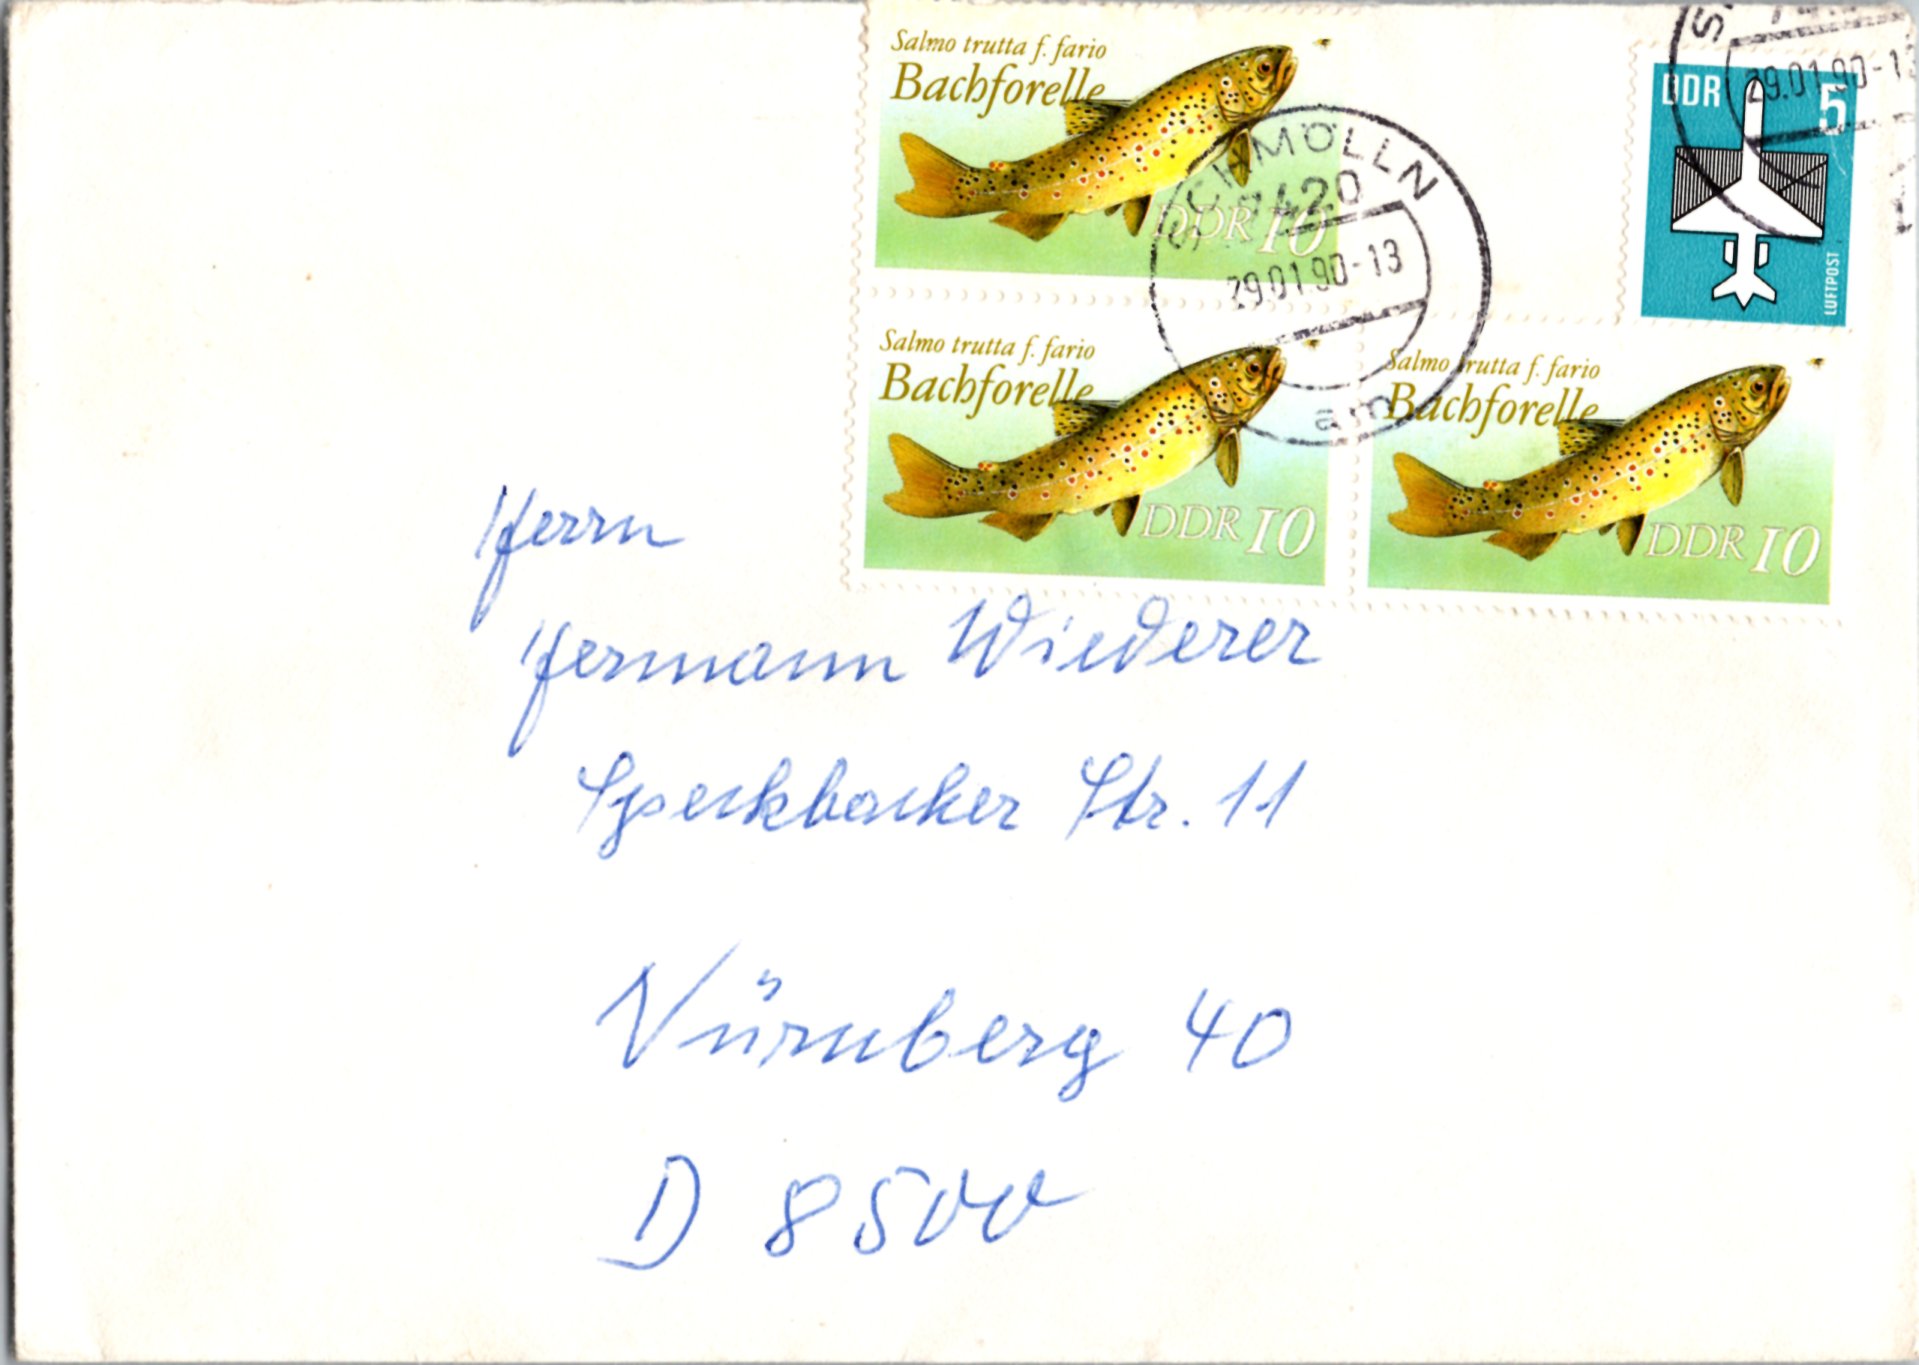 Salmo trutta f. fario
Bachforelle
DDR 10
SCHMÖLLN
7420
29.01.90-13
am
DDR 5
LUFTPOST
29.01.90-13
Salmo trutta f. fario
Bachforelle
DDR 10
Salmo trutta f. fario
Bachforelle
DDR 10
Herrn
Hermann Wiederer
Speckbacher Str. 11
Nürnberg 40
D 8500